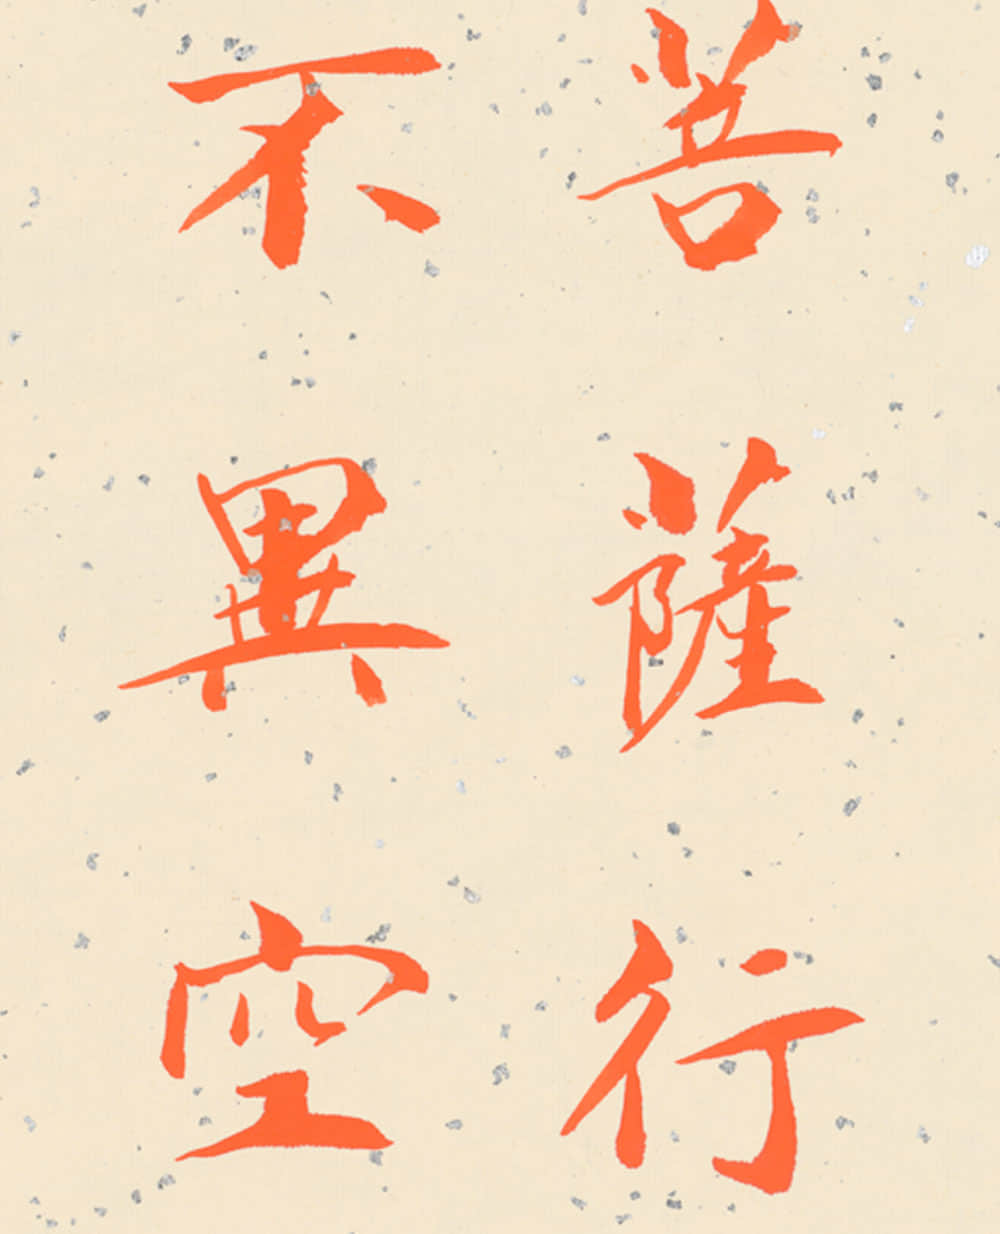 菩薩行
不異空